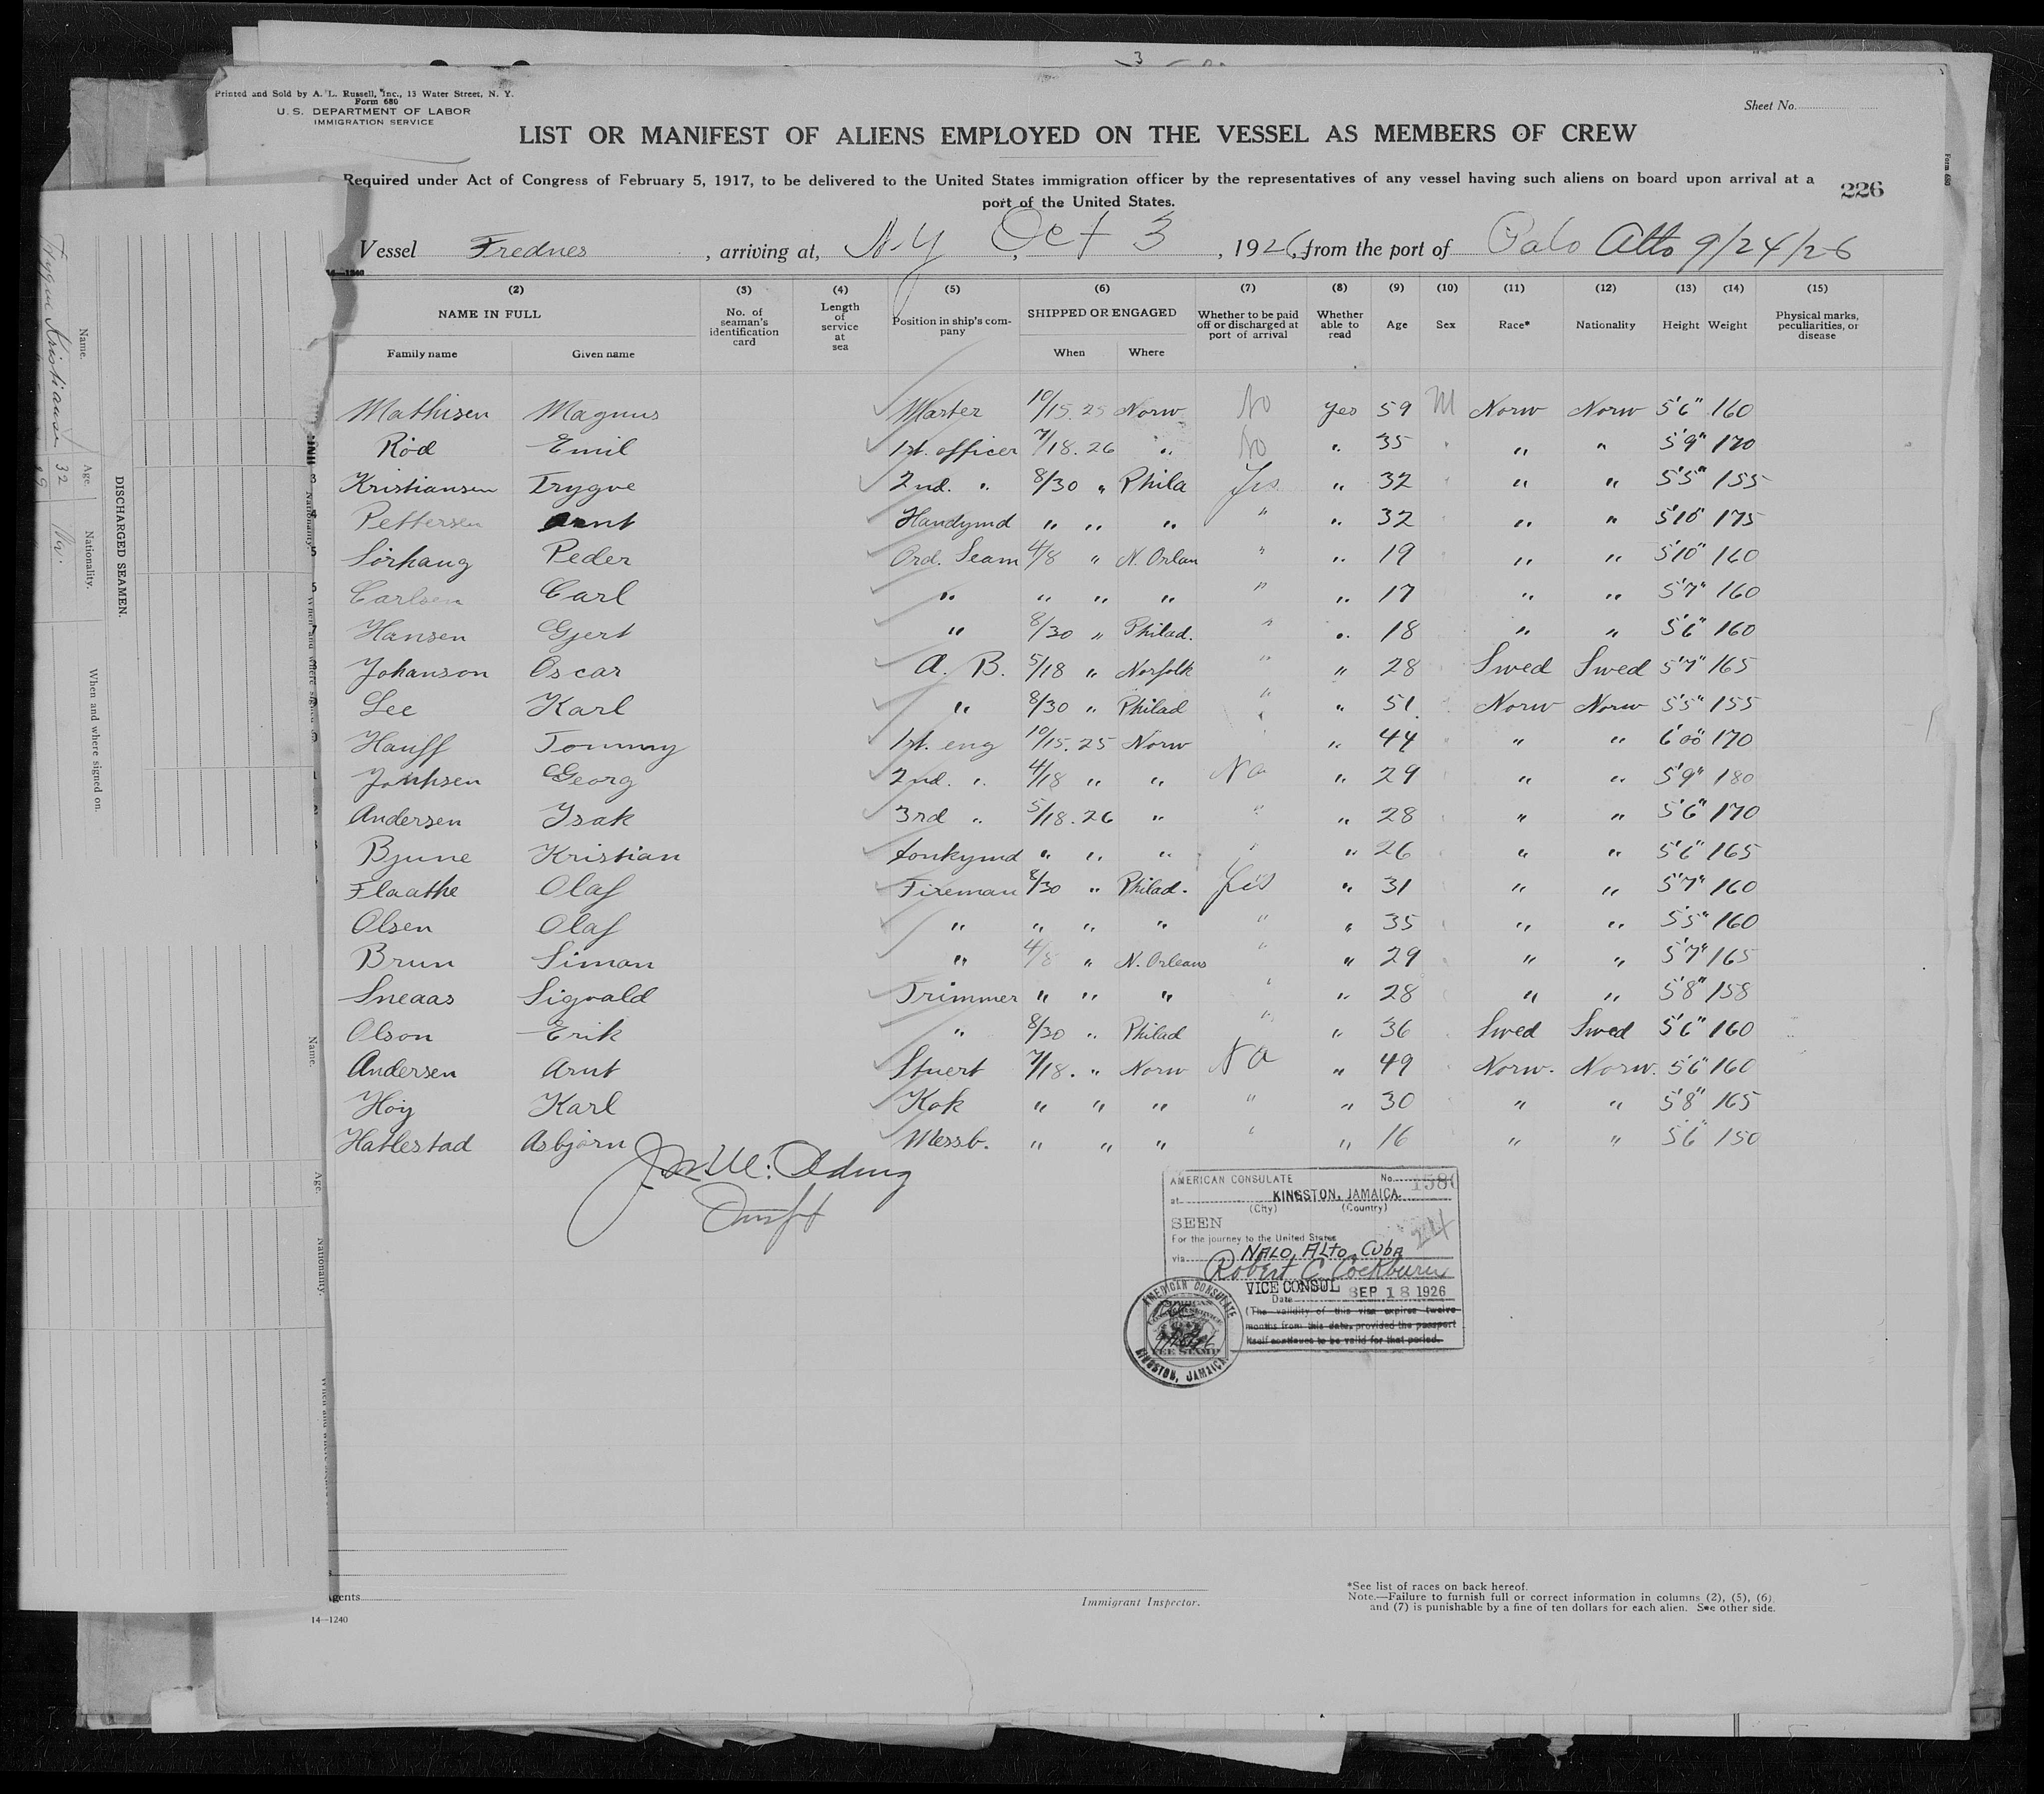 Printed and Sold by A. L. Russell, Inc., 13 Water Street, N. Y.
Form 680
U. S. DEPARTMENT OF LABOR
IMMIGRATION SERVICE
Sheet No.
LIST OR MANIFEST OF ALIENS EMPLOYED ON THE VESSEL AS MEMBERS OF CREW
Required under Act of Congress of February 5, 1917, to be delivered to the United States immigration officer by the representatives of any vessel having such aliens on board upon arrival at a
port of the United States.
226
Vessel Frednes, arriving at, N.Y, Oct 3, 1926, from the port of Palo Alto 9/24/26
14—1240
(2) (3) (4) (5) (6) (7) (8) (9) (10) (11) (12) (13) (14) (15)
NAME IN FULL No. of seaman's identification card Length of service at sea Position in ship's company SHIPPED OR ENGAGED Whether to be paid off or discharged at port of arrival Whether able to read Age Sex Race* Nationality Height Weight Physical marks, peculiarities, or disease
Family name Given name When Where
Mathisen Magnus Master 10/15.25 Norw No Yes 59 M Norw Norw 5'6" 160
Röd Emil 1st. officer 7/18.26 " No " 35 " " 5'9" 170
Kristiansen Trygve 2nd. " 8/30 " Phila Yes " 32 " " 5'5" 155
Pettersen Arnt Handymd " " " " " 32 " " 5'10" 175
Sörhaug Peder Ord. Seam 4/8 " N. Orlan " " 19 " " 5'10" 160
Carlsen Carl " " " " " " 17 " " 5'7" 160
Hansen Gjert " 8/30 " Philad. " " 18 " " 5'6" 160
Johanson Oscar A. B. 5/18 " Norfolk " " 28 Swed Swed 5'7" 165
Lee Karl " 8/30 " Philad " " 51 Norw Norw 5'5" 155
Hauff Tommy 1st. eng 10/15.25 Norw " " 44 " " 6'00" 170
Georg 2nd. " 4/18 " " No " 29 " " 5'9" 180
Andersen Isak 3rd " 5/18.26 " " " 28 " " 5'6" 170
Bjune Kristian Donkymd " " " " " 26 " " 5'6" 165
Flaathe Olaf Fireman 8/30 " Philad. Yes " 31 " " 5'7" 160
Olsen Olaf " " " " " " 35 " " 5'5" 160
Brun Simon " 4/8 " N. Orleans " " 29 " " 5'7" 165
Sneaas Sigvald Trimmer " " " " " 28 " " 5'8" 158
Olson Erik " 8/30 " Philad " " 36 Swed Swed 5'6" 160
Andersen Arnt Stuert 7/18. " Norw No " 49 Norw. Norw. 5'6" 160
Höy Karl Kok " " " " " 30 " " 5'8" 165
Hatlestad Asbjørn Messb. " " " " " 16 " " 5'6" 150
AMERICAN CONSULATE No. 1580
at KINGSTON, JAMAICA.
(City) (Country)
SEEN
For the journey to the United States
via NALO, ALTO, CUBA
Robert C Cockburn
VICE CONSUL
Date SEP 18 1926
(The validity of this visa expires twelve
months from this date, provided the passport
itself continues to be valid for that period.
AMERICAN CONSULATE
FEE STAMP
KINGSTON, JAMAICA
Agents
Immigrant Inspector.
*See list of races on back hereof.
Note.—Failure to furnish full or correct information in columns (2), (5), (6)
and (7) is punishable by a fine of ten dollars for each alien. See other side.
14—1240
DISCHARGED SEAMEN.
Name. Age. Nationality. When and where signed on.
Trygve Kristiansen 32
Name. Age. Nationality.
Form 680